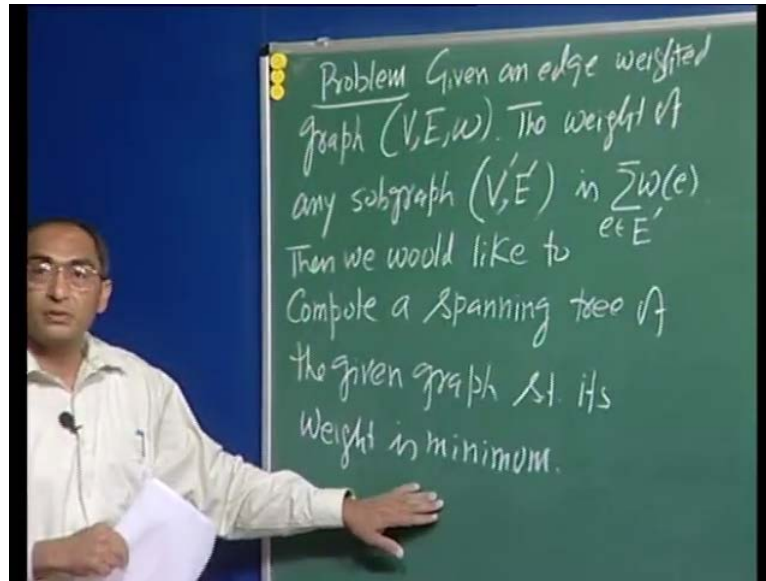 Problem Given an edge weighted
graph (V,E,w). The weight of
any subgraph (V',E') is ∑w(e)
e∈E'
Then we would like to
Compute a spanning tree of
the given graph st. its
weight is minimum.